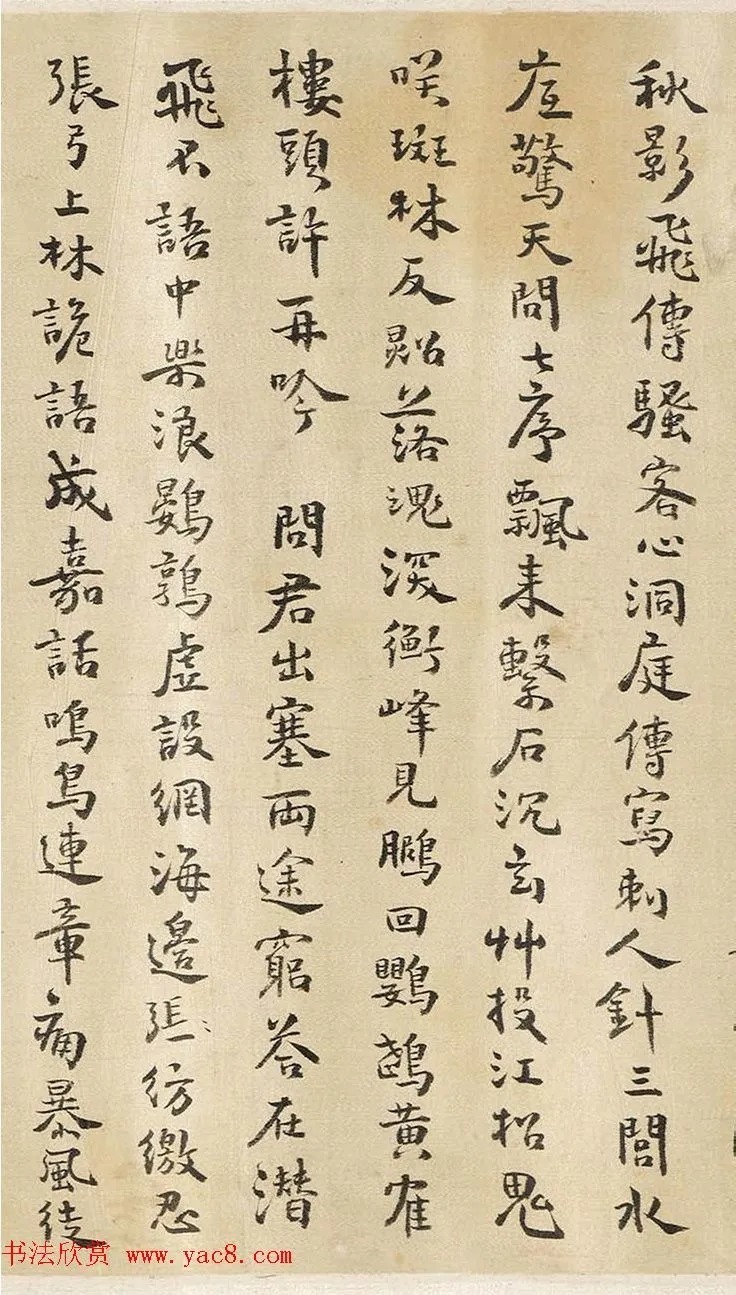 秋影飛傳騷客心洞庭傳寫刺人針三閭水
府驚天問七序飄來繫石沉玄艸投江招鬼
咲斑林反照落魂深衡峰見鵬回鸚鵡黃雀
樓頭許再吟 問君出塞兩途窮荅在潛
飛不語中樂浪鷃鶉虛設網海邊張仿繳忍
張弓上林詭語成嘉話鳴鳥連章痛暴風徒
书法欣赏 www.yac8.com